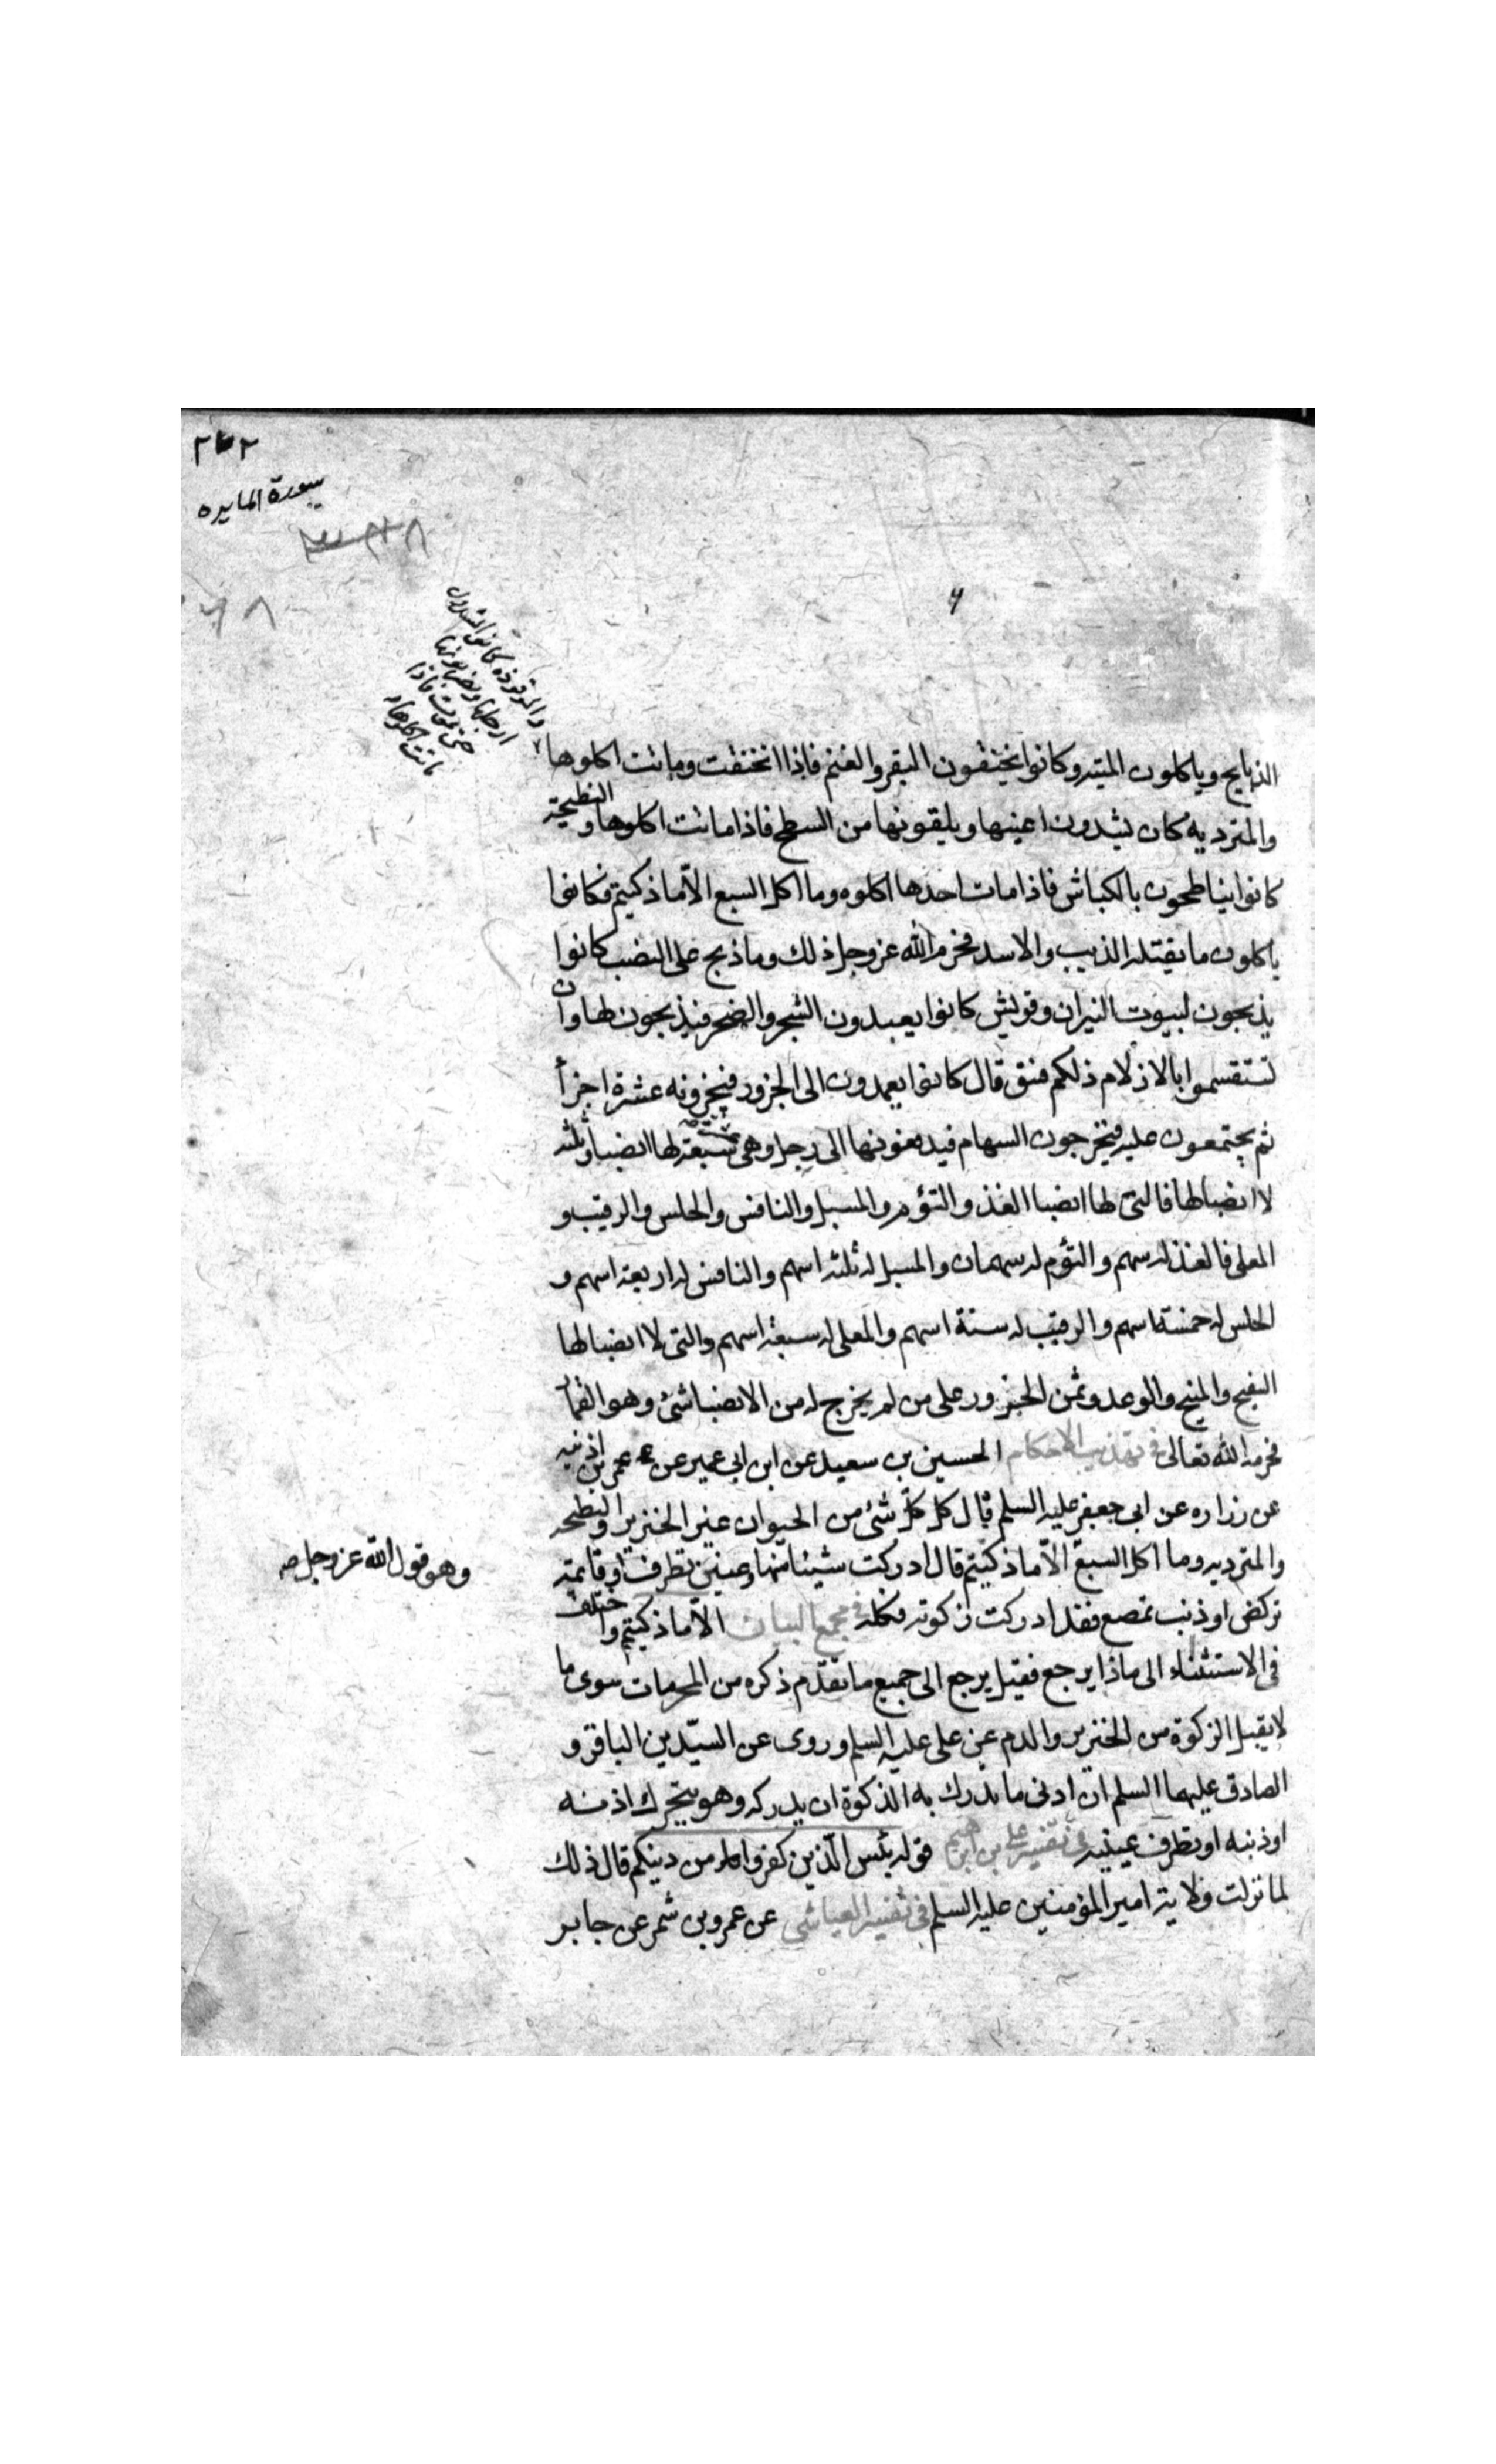 ٢٧٢
سورة المايده
والموقوذه كانوا يشدون
ارجلها ويضربونها
حتى تموت فاذا
ماتت اكلوها
الذبايح وياكلون الميته وكانوا يخنقون البقر والغنم فاذا انخنقت وماتت اكلوها
والمترديه كان يشدون اعينها ويلقونها من السطح فاذا ماتت اكلوها والنطيحة
كانوا يناطحون بالكباش فاذا مات احدها اكلوه وما اكل السبع الّا ما ذكيتم فكانوا
ياكلون ما يقتله الذيب والاسد فحرم الله عز وجل ذلك وما ذبح على النصب كانوا
يذبحون لبيوت النيران وقريش كانوا يعبدون الشجر والصخر فيذبحون لها وان
تستقسموا بالازلام ذلكم فسق قال كانوا يعمدون الى الجزور فيجزونه عشرة اجزأ
ثم يجتمعون عليه فيخرجون السهام فيدفعونها الى رجل وهى سبعة لها انصبا وثلثه
لا انصبا لها فالتى لها انصبا الفذ والتؤم والمسبل والنافس والحلس والرقيب و
المعلى فالفذ له سهم والتؤم له سهمان والمسبل له ثلثه اسهم والنافس له اربعة اسهم و
الحلس له خمسة اسهم والرقيب له ستة اسهم والمعلى له سبعة اسهم والتى لا انصبا لها
السفيح والمنيح والوغد وثمن الجزور على من لم يخرج له من الانصبا شئ وهو القمار
فحرمه الله تعالى فى تهذيب الاحكام الحسين بن سعيد عن ابن ابى عمير عن عمر بن اذينه
عن زراره عن ابى جعفر عليه السلم قال كل كلّ شئ من الحيوان غير الخنزير والنطيحه
والمترديه وما اكل السبع الّا ما ذكيتم قال ادركت شيئا منها وعين تطرف او قائمة
وهو قول الله عز وجل صه
تركض او ذنب تمصع فقد ادركت زكوته فكله فى مجمع البيان الّا ما ذكيتم واختلف
فى الاستثناء الى ماذا يرجع فقيل يرجع الى جميع ما تقدّم ذكره من المحرمات سوى ما
لا يقبل الزكوة من الخنزير والدم عن على عليه السلم وروى عن السيّدين الباقر و
الصادق عليهما السلم ان ادنى ما يدرك به الذكوة ان يدركه وهو يتحرك اذنه
او ذنبه او تطرف عينيه فى تفسير على بن ابرهيم قوله يئس الّذين كفروا من دينكم قال ذلك
لما نزلت ولاية امير المؤمنين عليه السلم فى تفسير العياشى عن عمرو بن شمر عن جابر